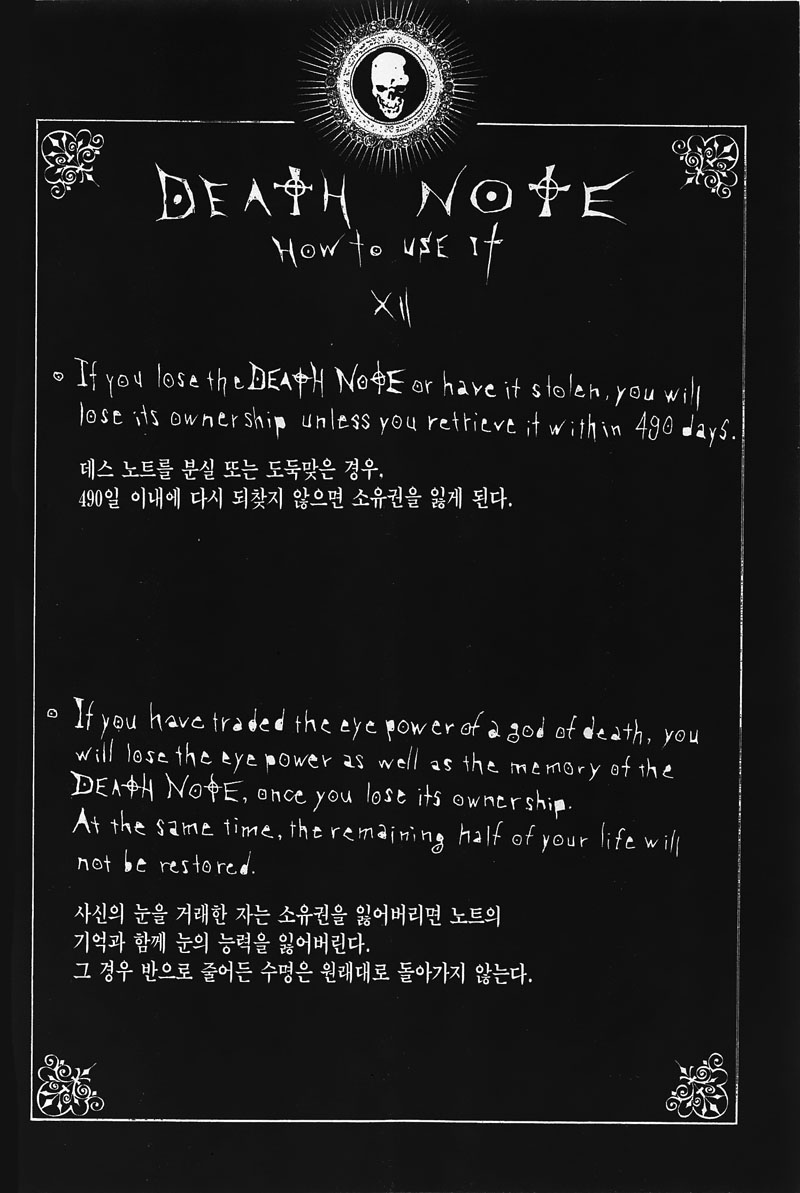 DEATH NOTE
HOW to USE IT
XII
If you lose the DEATH NOTE or have it stolen, you will
lose its ownership unless you retrieve it within 490 days.
데스 노트를 분실 또는 도둑맞은 경우,
490일 이내에 다시 되찾지 않으면 소유권을 잃게 된다.
If you have traded the eye power of a god of death, you
will lose the eye power as well as the memory of the
DEATH NOTE, once you lose its ownership.
At the same time, the remaining half of your life will
not be restored.
사신의 눈을 거래한 자는 소유권을 잃어버리면 노트의
기억과 함께 눈의 능력을 잃어버린다.
그 경우 반으로 줄어든 수명은 원래대로 돌아가지 않는다.